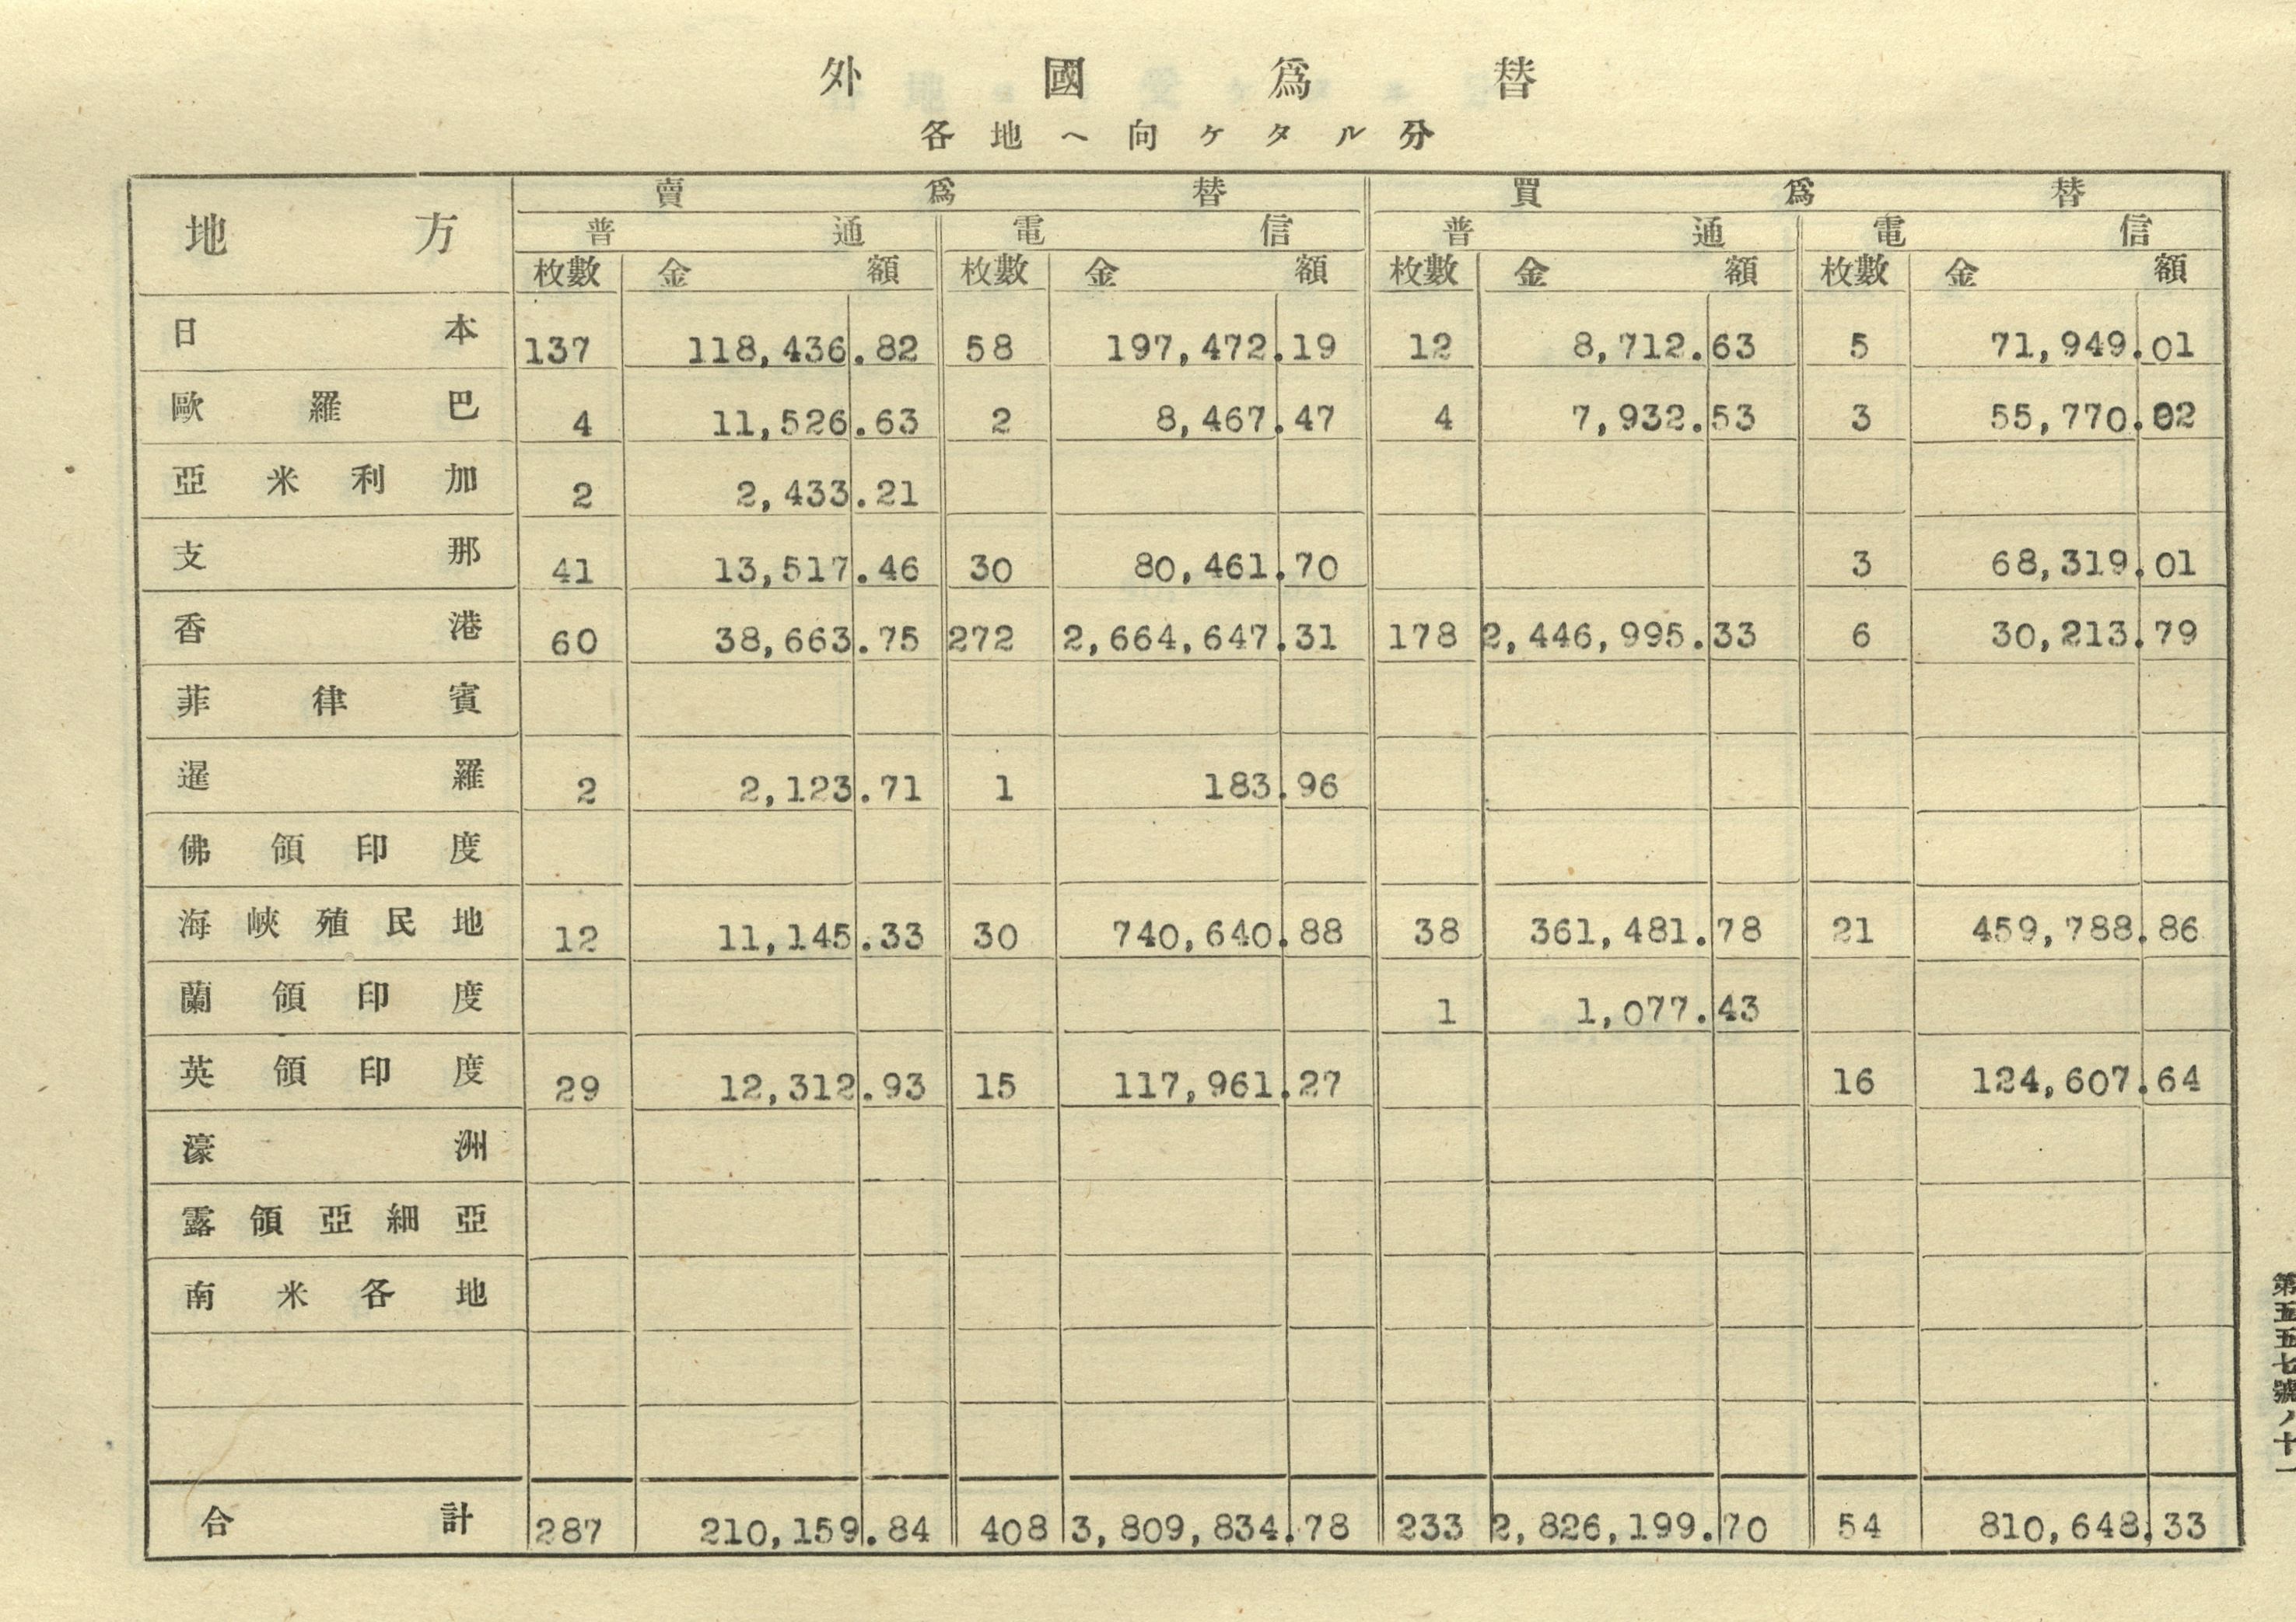 外國爲替
各地ヘ向ケタル分
地方 賣爲替 買爲替
普通 電信 普通 電信
枚數 金額 枚數 金額 枚數 金額 枚數 金額
日本 137 118,436.82 58 197,472.19 12 8,712.63 5 71,949.01
歐羅巴 4 11,526.63 2 8,467.47 4 7,932.53 3 55,770.02
亞米利加 2 2,433.21
支那 41 13,517.46 30 80,461.70 3 68,319.01
香港 60 38,663.75 272 2,664,647.31 178 2,446,995.33 6 30,213.79
菲律賓
暹羅 2 2,123.71 1 183.96
佛領印度
海峽殖民地 12 11,145.33 30 740,640.88 38 361,481.78 21 459,788.86
蘭領印度 1 1,077.43
英領印度 29 12,312.93 15 117,961.27 16 124,607.64
濠洲
露領亞細亞
南米各地
合計 287 210,159.84 408 3,809,834.78 233 2,826,199.70 54 810,648.33
第五五七號ノ十一